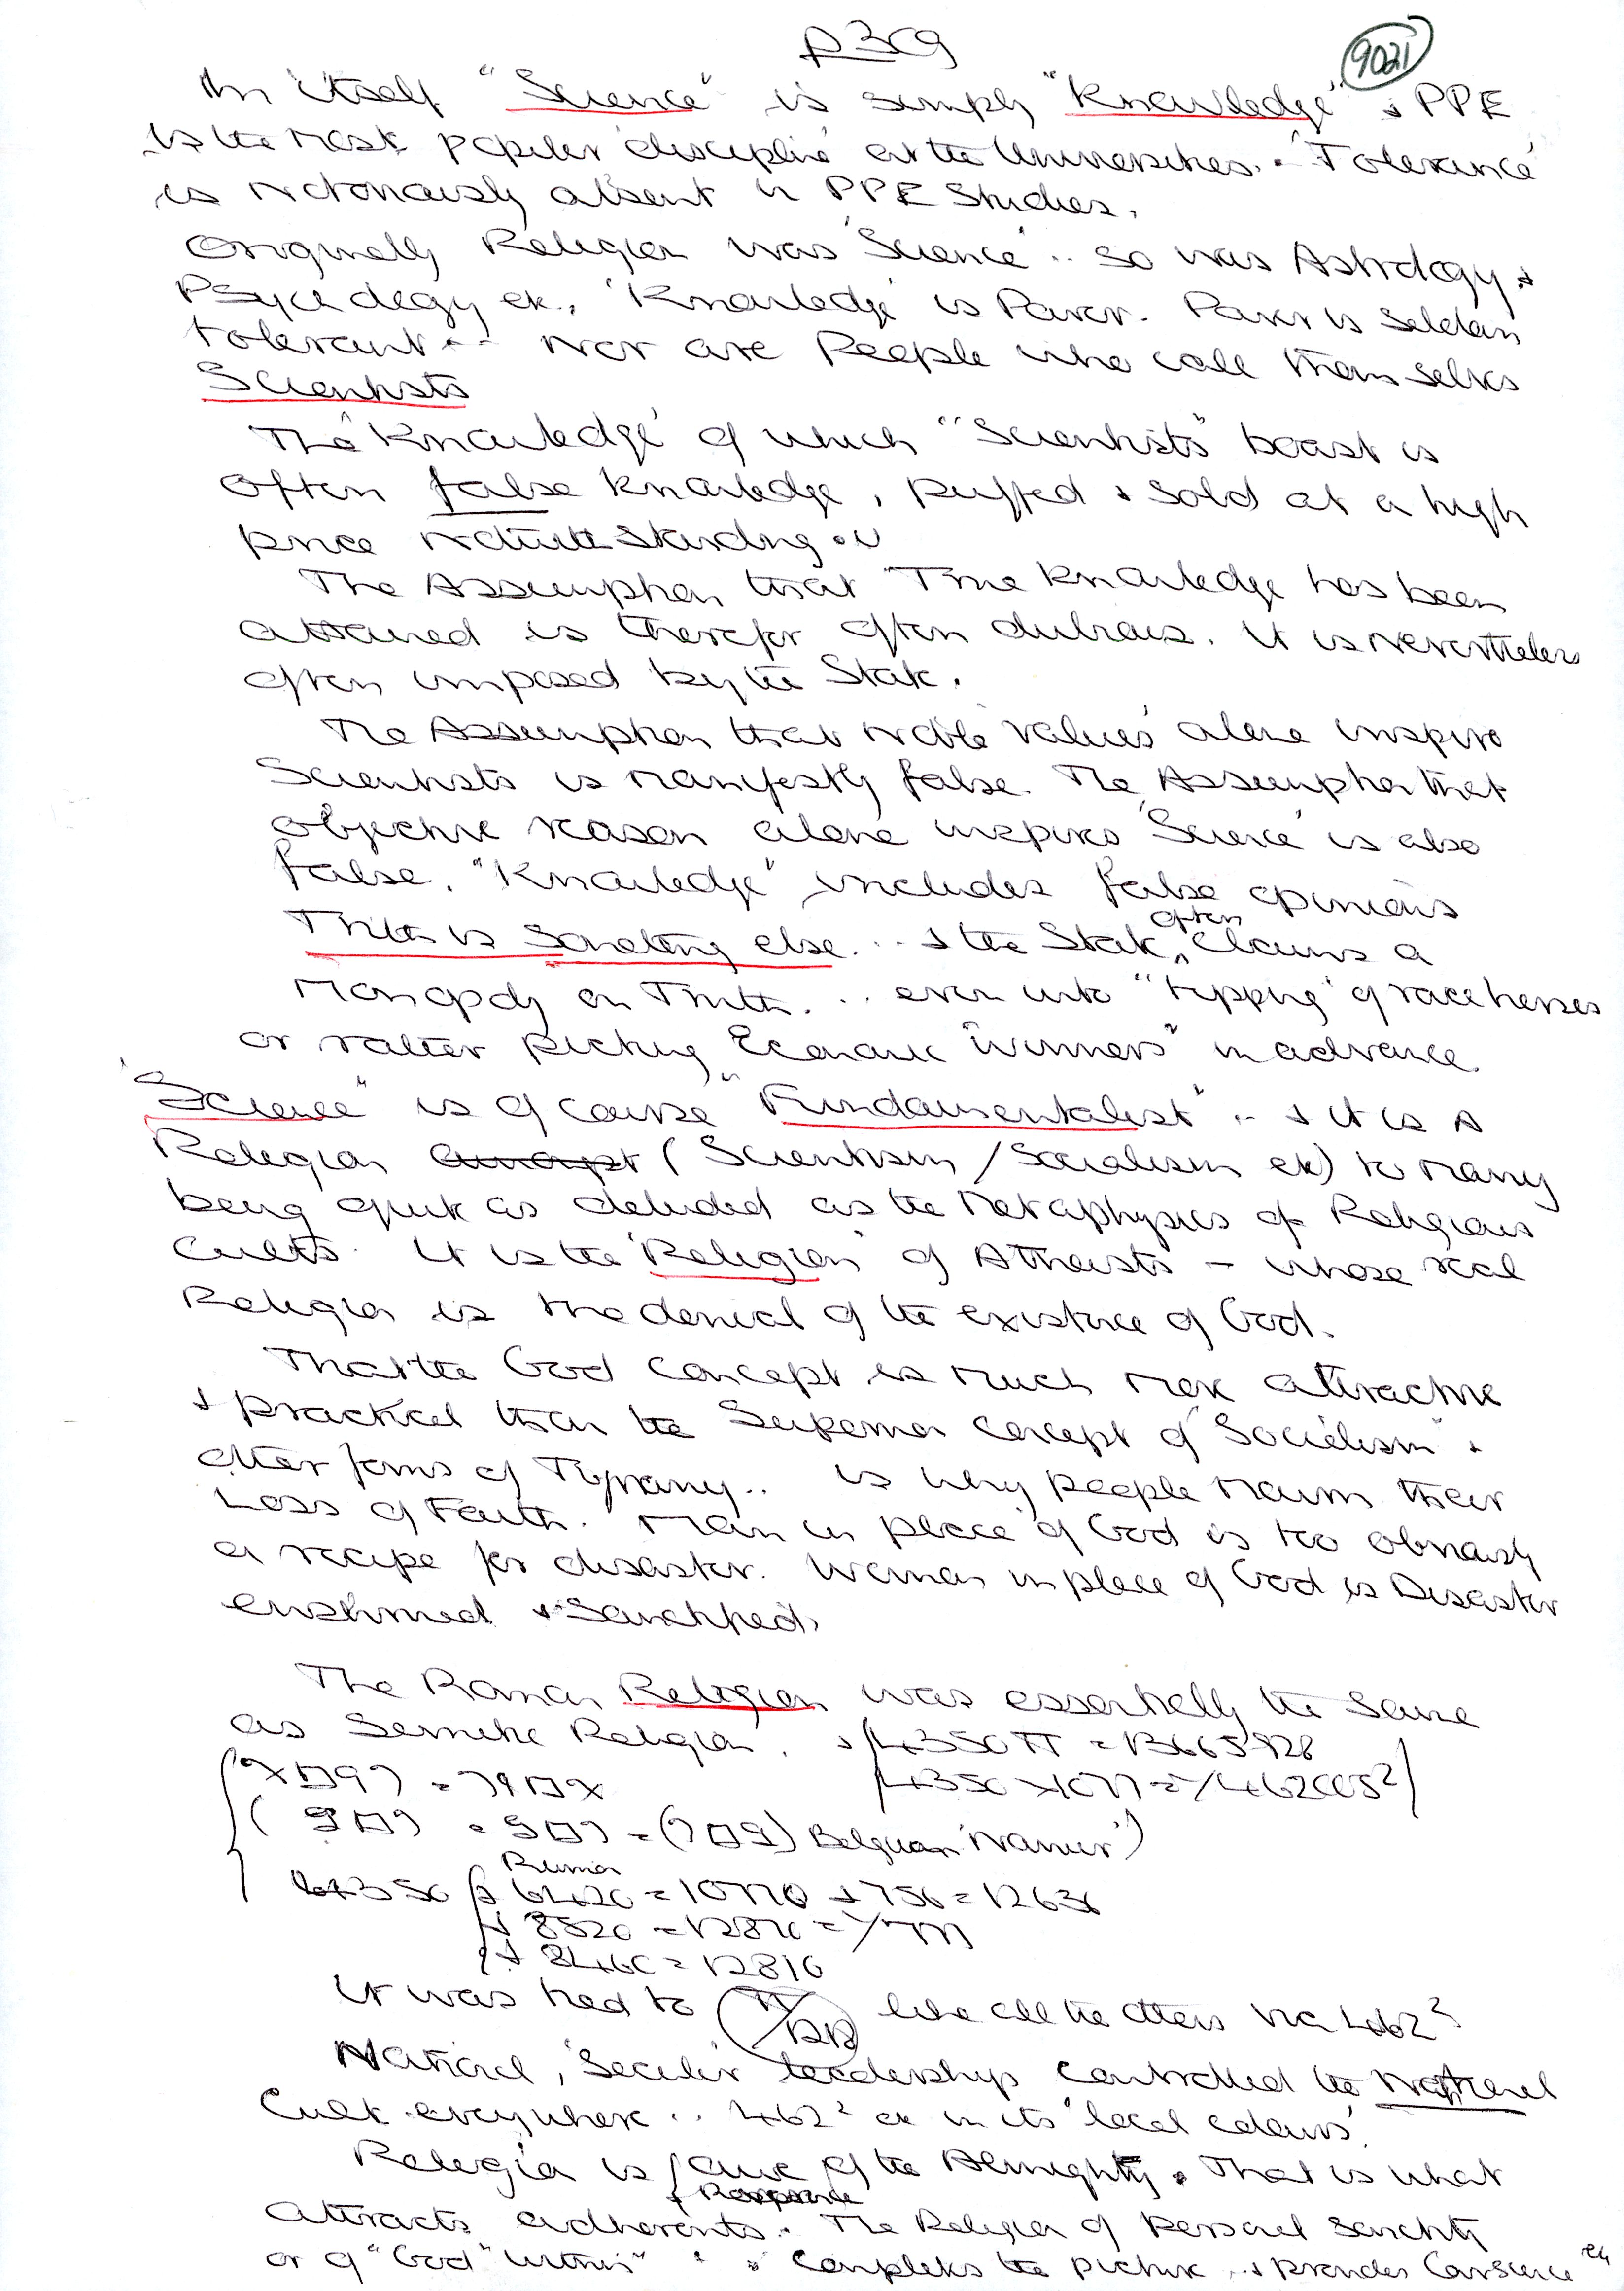 p3c9
9021
In itself "Science" is simply "Knowledge" & PPE
is the most popular 'discipline' at the Universities. . 'Tolerance'
is notoriously absent in PPE Studies.
Originally Religion was 'Science' .. so was Astrology &
Psychology etc. 'Knowledge' is Power. Power is seldom
tolerant .. nor are People who call themselves
Scientists
The 'Knowledge' of which "Scientists" boast is
often false knowledge, puffed & sold at a high
price notwithstanding
The Assumption that True Knowledge has been
attained is therefor often dubious. It is nevertheless
often imposed by the State.
The Assumption that noble 'values' alone inspire
Scientists is manifestly false. The Assumption that
objective reason alone inspires 'Science' is also
false. "Knowledge" includes false opinions
Truth is something else . .. & the State often claims a
Monopoly on Truth. .. even into "tipping" of race horses
or rather picking Economic "winners" in advance.
"Science" is of course "Fundamentalist" .. & it is A
Religion (Scientism / Socialism etc) to many
being quite as deluded as the Metaphysics of Religious
Cults. It is the 'Religion' of Atheists - whose real
Religion is the denial of the existence of God.
That the God concept is much more attractive
& practical than the Superman concept of 'Socialism' &
other forms of Tyranny .. is why people mourn their
Loss of Faith. 'Man in place' of God is too obviously
a recipe for disaster. Woman in place of God is Disaster
enshrined & Sanctified.
The Roman Religion was essentially the same
as Semitic Religion. &
4350 π = 13665928
Belgian 'Namur')
= 12636
= 12810
It was tied to like all the others via 462²
National, 'Secular' leadership controlled the National
Cult everywhere .. 462² etc in its 'local colours'.
Religion is awe of the Almighty. That is what
attracts adherents. The Religion of personal sanctity
or of "God" within" completes the picture & provides Conscience